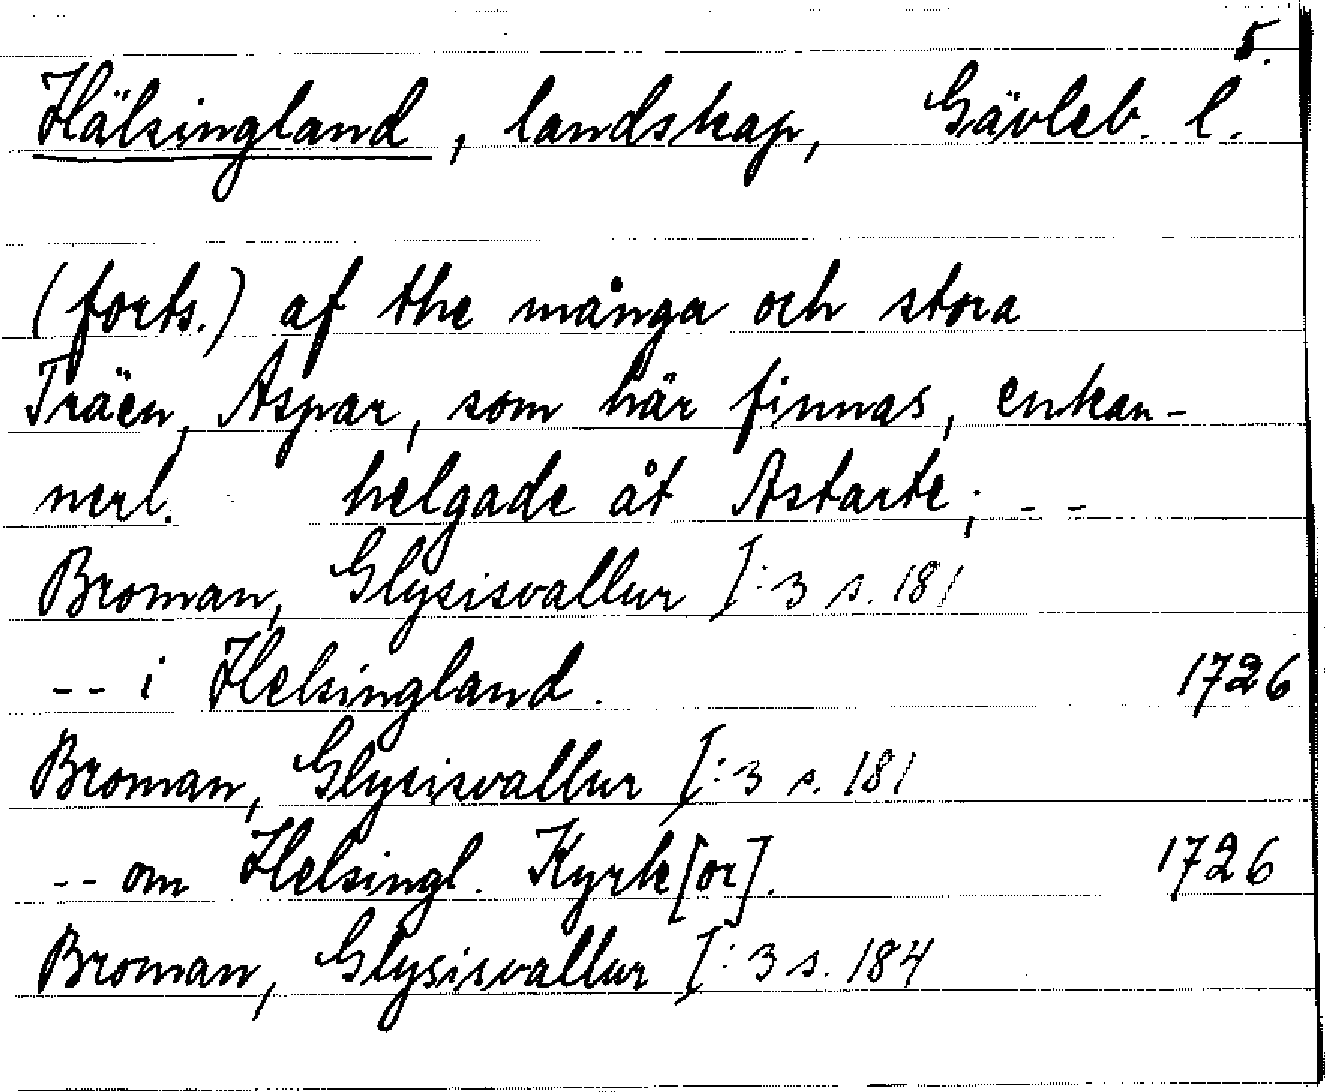 5.
Hälsingland, landskap, Gävleb. l.
(forts.) af the många och stora
Träen, Aspar, som här finnas, enkan-
nerl. helgade åt Astarte; - -
Broman, Glysisvallur I:3 s. 181
-- i Helsingland. 1726
Broman, Glysisvallur I:3 s. 181
-- om Helsingl. Kyrk[or]. 1726
Broman, Glysisvallur I:3 s. 184